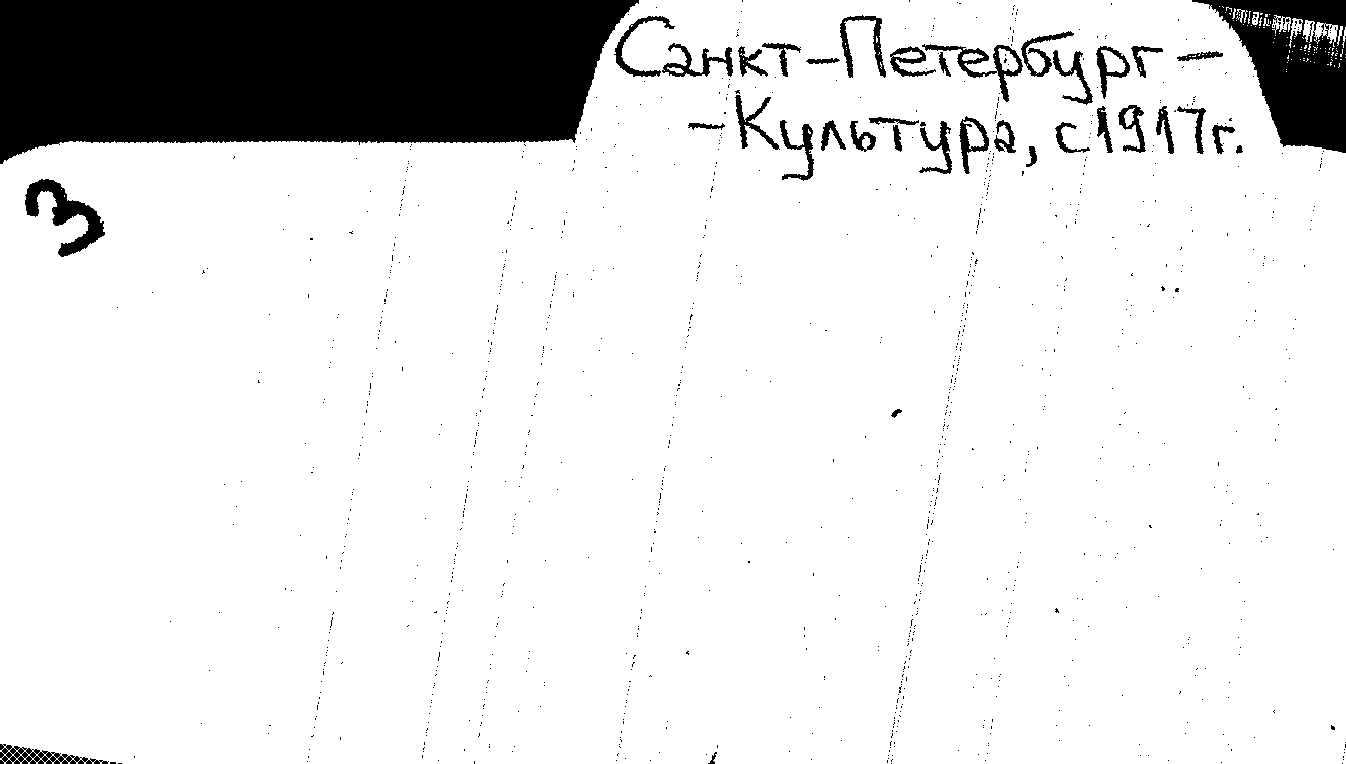 Санкт-Петербург -
- Культура, с 1917г.
3